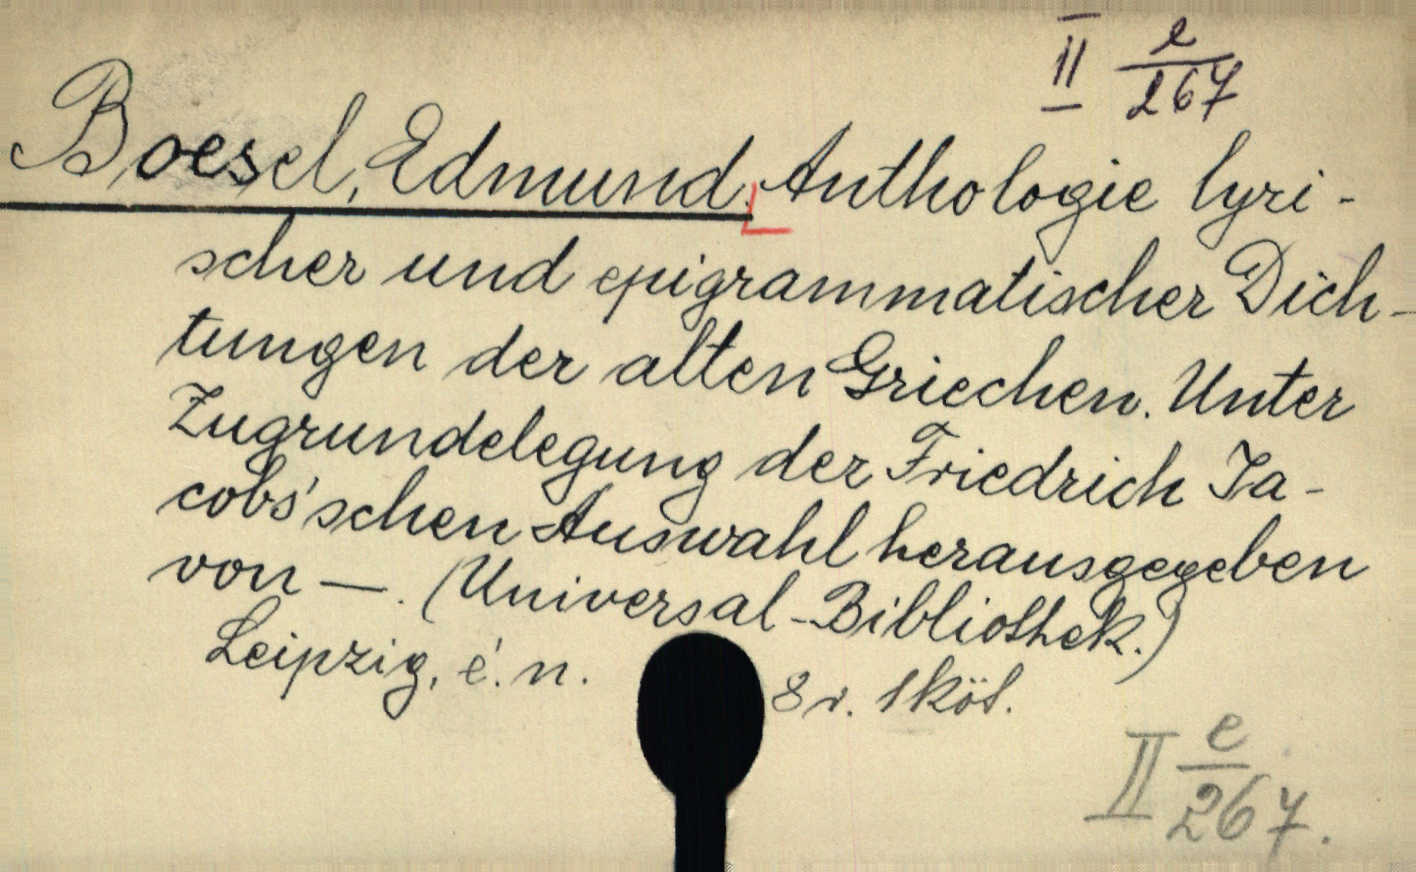 II e/267
Boesel, Edmund. Anthologie lyri-
scher und epigrammatischer Dich-
tungen der alten Griechen. Unter
Zugrundelegung der Friedrich Ja-
cobs'schen Auswahl herausgegeben
von —. (Universal-Bibliothek.)
Leipzig, é. n. 8 r. 1 köt.
II e/267.